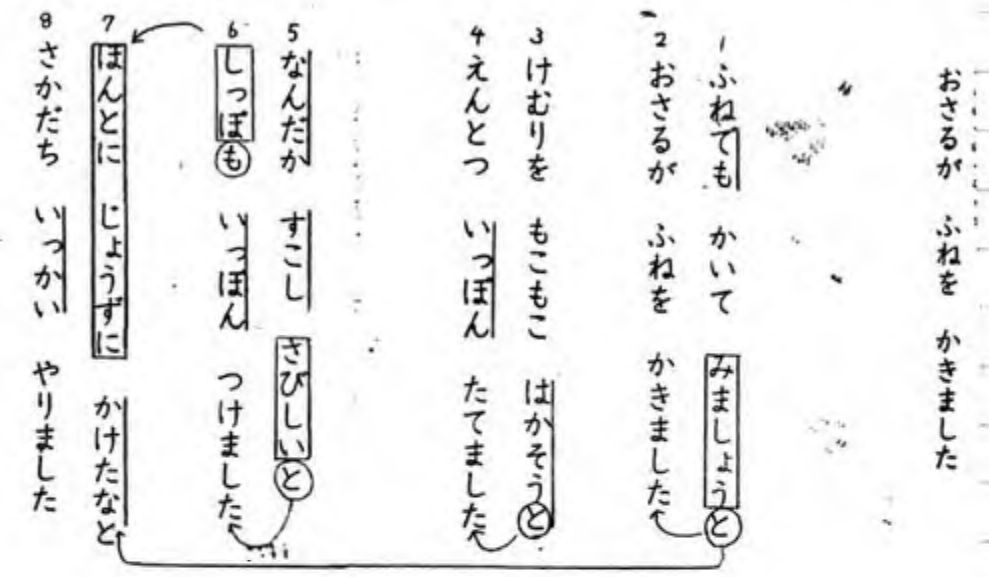 おさるが ふねを かきました
1 ふねでも かいて みましょうと
2 おさるが ふねを かきました
3 けむりを もこもこ はかそうと
4 えんとつ いっぽん たてました
5 なんだか すこし さびしいと
6 しっぽも いっぽん つけました
7 ほんとに じょうずに かけたなと
8 さかだち いっかい やりました